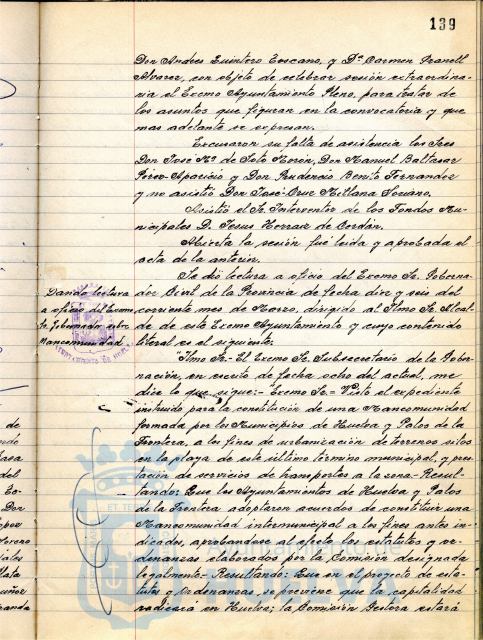 139
Don Andres Quintero Toscano, y Dª Carmen Pranell
Alvarez, con objeto de celebrar sesión extraordina-
ria el Excmo Ayuntamiento Pleno, para tratar de
los asuntos que figuran en la convocatoria y que
mas adelante se expresan.
Excusaron su falta de asistencia los Sres
Don Jose Mª de Soto Morón, Don Manuel Baltasar
Pérez-Aparicio y Don Prudencio Benito Fernandez
y no asistió Don Jose-Cruz Millana Soriano.
Asistió el Sr. Interventor de los Fondos Mu-
nicipales D. Jesus Herraz de Cordán.
Abierta la sesión fué leida y aprobada el
acta de la anterior.
Se dio lectura a oficio del Excmo Sr. Goberna-
dor Civil de la Provincia de fecha diez y seis del
corriente mes de Marzo, dirigido al Ilmo Sr. Alcal-
de de este Excmo Ayuntamiento y cuyo contenido
literal es el siguiente:
"Ilmo Sr.- El Excmo Sr. Subsecretario de la Gober-
nación, en escrito de fecha ocho del actual, me
dice lo que sigue:- "Excmo Sr.= Visto el expediente
instruido para la constitución de una Mancomunidad
formada por los Municipios de Huelva y Palos de la
Frontera, a los fines de urbanización de terrenos sitos
en la playa de este ultimo término municipal, y pres-
tación de servicios de transportes a la zona.- Resul-
tando: Que los Ayuntamientos de Huelva y Palos
de la Frontera adoptaron acuerdos de constituir una
Mancomunidad intermunicipal a los fines antes in-
dicados, aprobandose al efecto los estatutos y or-
denanzas elaborados por la Comisión designada
legalmente.- Resultando: Que en el proyecto de esta-
tutos y Ordenanzas, se previene que la capitalidad
radicará en Huelva; la Comisión Gestora estará
Dando lectura
a oficio del Excmo
Sr. Gobernador sobre
Mancomunidad.